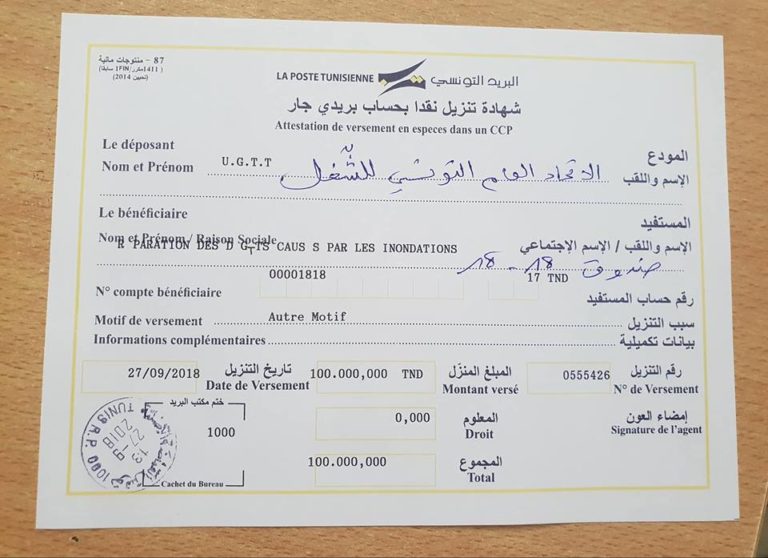 87 - منتوجات مالية
(1411 مكرر/1FIN سابقا)
(تحيين 2014)
LA POSTE TUNISIENNE البريد التونسي
شهادة تنزيل نقدا بحساب بريدي جار
Attestation de versement en especes dans un CCP
Le déposant المودع
Nom et Prénom U.G.T.T الاتحاد العام التونسي للشّغل الإسم واللقب
Le bénéficiaire المستفيد
Nom et Prénom / Raison Sociale الاسم واللقب / الإسم الإجتماعي
R PARATION DES D G TS CAUS S PAR LES INONDATIONS صندوق 18 - 18
00001818 17 TND
N° compte bénéficiaire رقم حساب المستفيد
Motif de versement Autre Motif سبب التنزيل
Informations complémentaires بيانات تكميلية
27/09/2018 تاريخ التنزيل 100.000,000 TND المبلغ المنزّل 0555426 رقم التنزيل
Date de Versement Montant versé N° de Versement
ختم مكتب البريد 1000 0,000 المعلوم إمضاء العون
Droit Signature de l'agent
100.000,000 المجموع
Total
Cachet du Bureau
1000 TUNIS R.P.
13
27 -9
2018